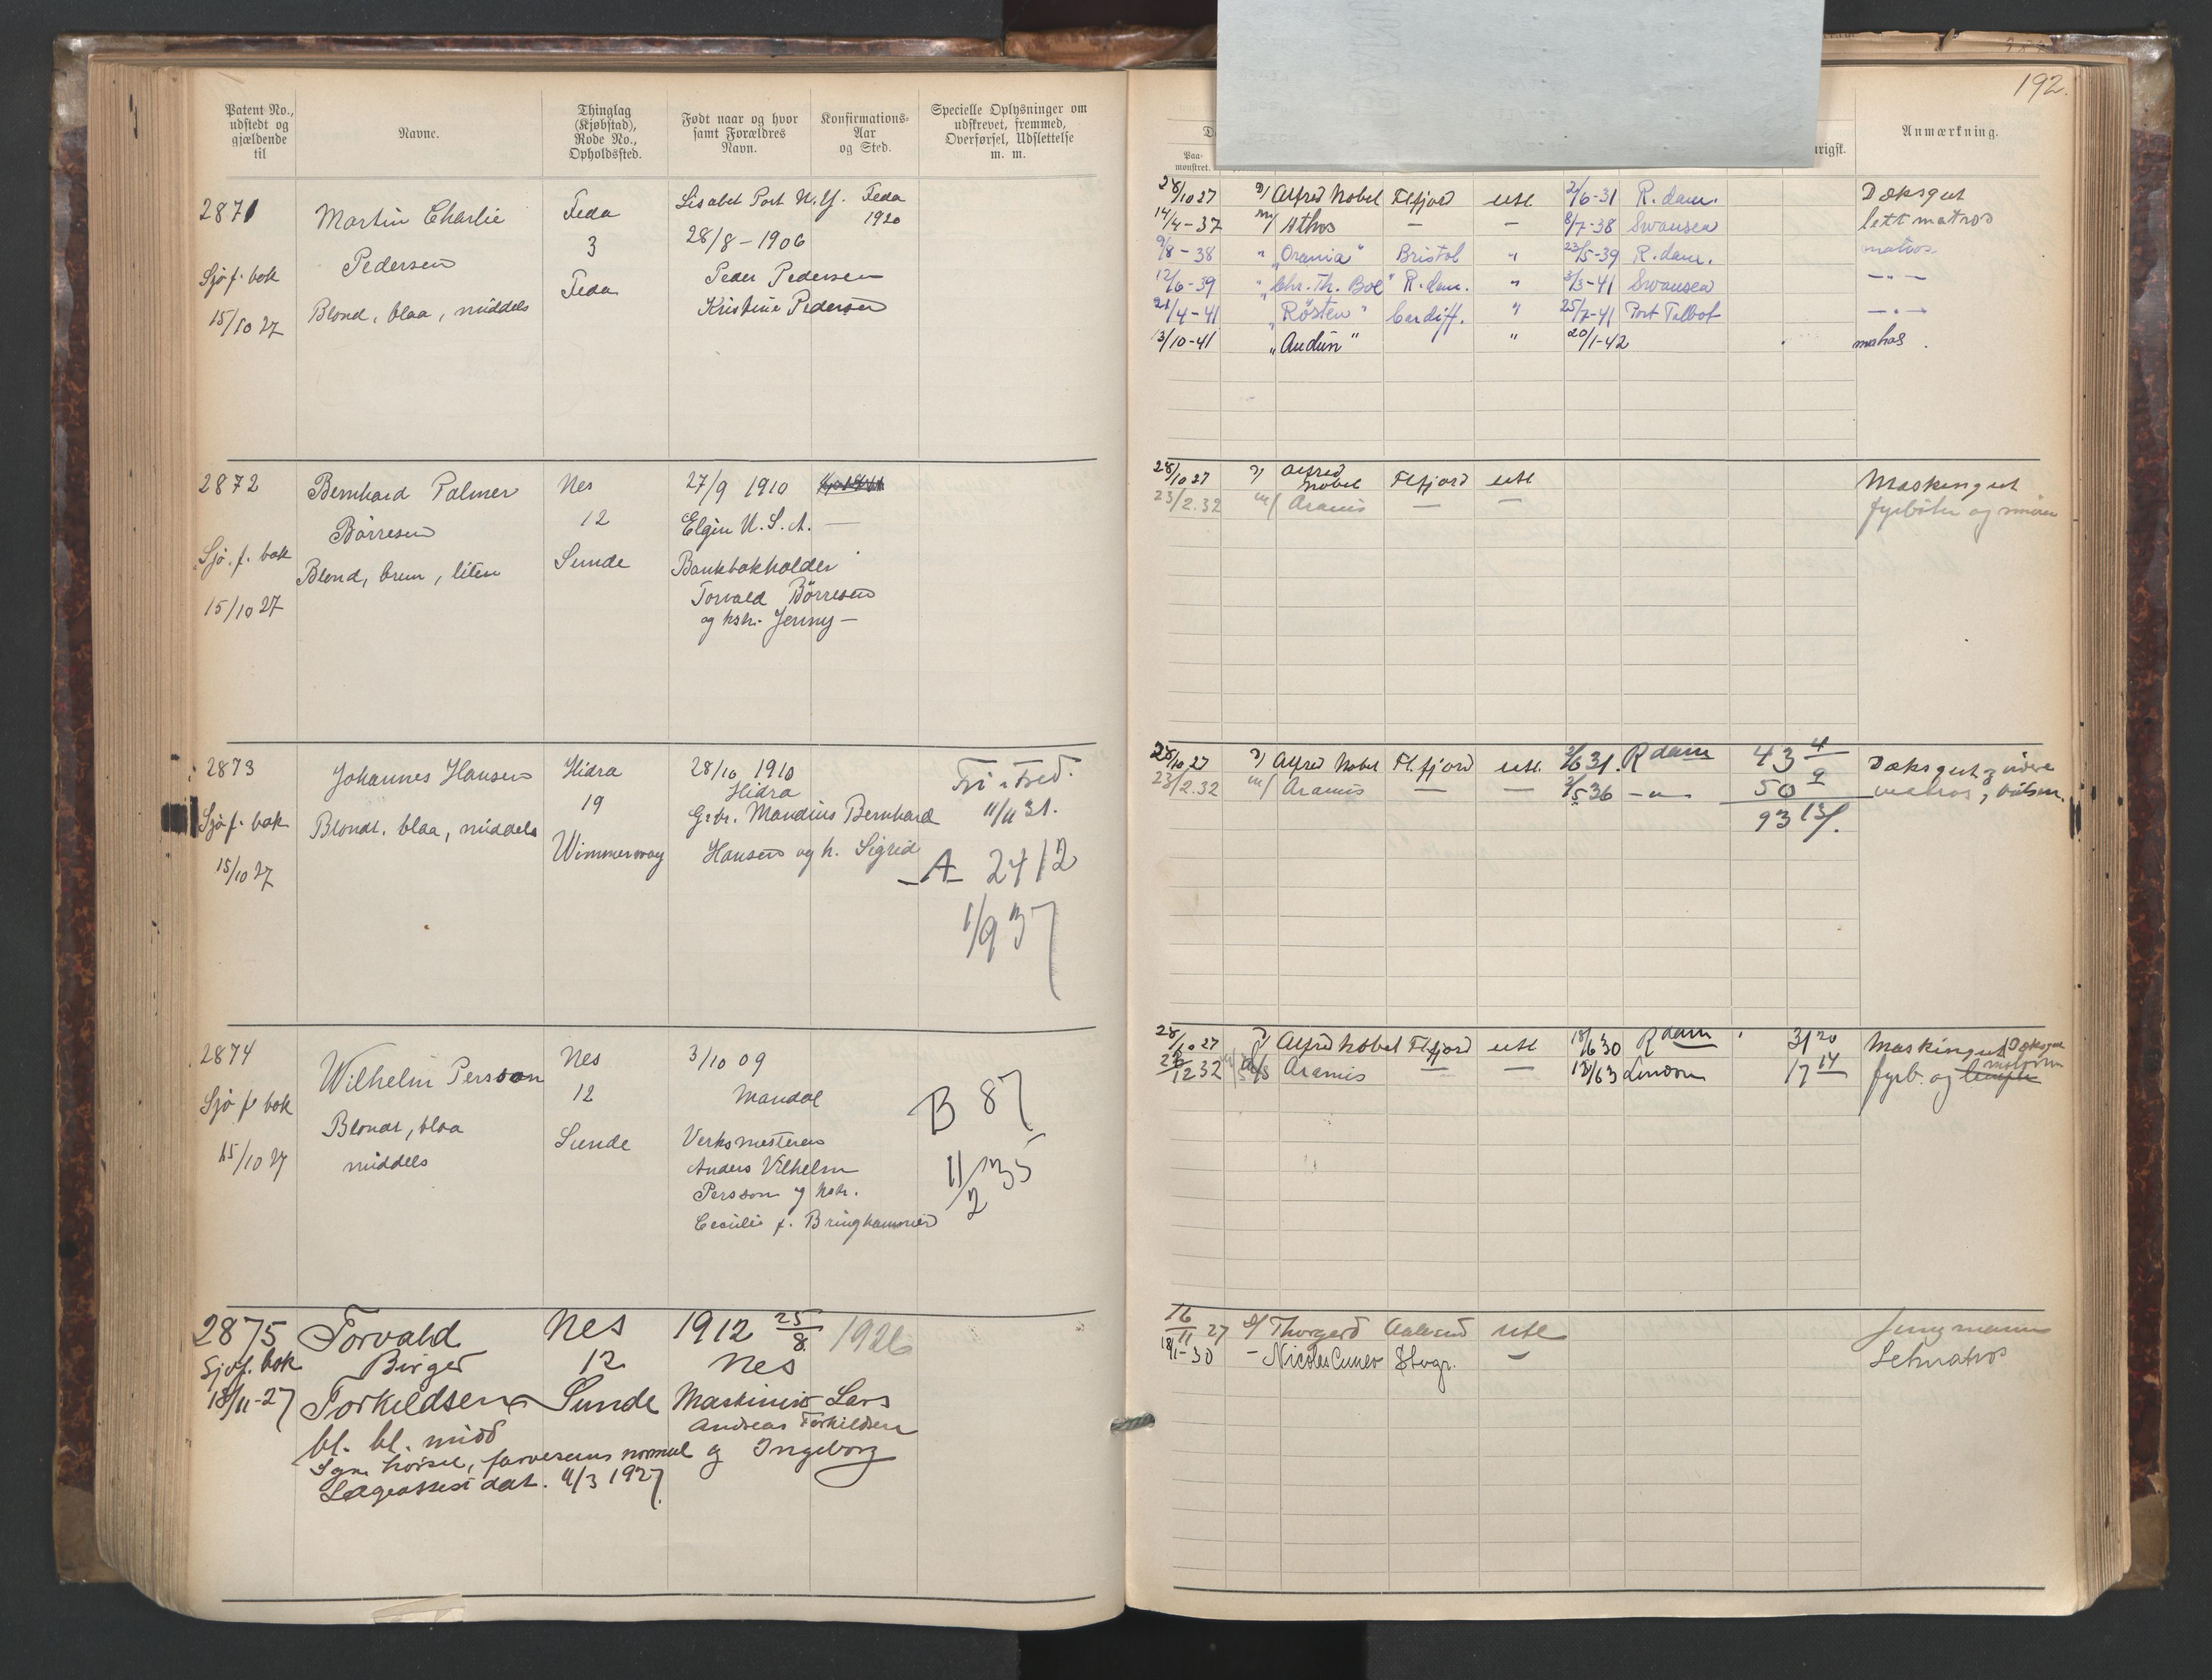 192.
Patent No., udstedt og gjældende til
Navne.
Thinglag (Kjøbstad), Rode No., Opholdssted.
Født naar og hvor samt Forældres Navn.
Konfirmations-Aar og Sted.
Specielle Oplysninger om udskrevet, fremmed, Overførsel, Udslettelse m. m.
Paa-mønstret.
Anmærkning.
2871
Sjø f. bok
15/10 27
Martin Charlie
Pedersen
Blond, blaa, middels
Feda
3
Feda
Lisabet Port N.Y.
28/8 - 1906
Peder Pedersen
Kristine Pedersen
Feda
1920
28/10 27 D/ Alfred Nobel Flfjord utl 2/6-31 R.dam. Dæksgut
14/4-37 M/ Athos — — 8/7-38 Swansea lett matros
9/8-38 " "Orania" Bristol " 23/5-39 R.dam. matros
12/6-39 " "Chr. Th. Boe" R.dam. " 3/3-41 Swansea — " —
21/4-41 "Rösten" Cardiff. " 25/7-41 Port Talbot — " —
13/10-41 "Audun" " 20/1-42 matros.
2872
Sjø. f. bok
15/10 27
Bernhard Palmer
Börresen
Blond, brun, liten
Nes
12
Sunde
27/9 1910
Elgin U.S.A. —
Bankbokholder
Torvald Börresen
og hstr. Jenny —
28/10 27 D/ Alfred Nobel Flfjord utl Maskingut
23/2.32 m/ Aramis — — fyrböter og smörer
2873
Sjø f. bok
15/10 27
Johannes Hansen
Blondt, blaa, middels
Hidra
19
28/10 1910
Hidra
Gbr. Mandius Bernhard
Hansen og h. Sigrid
11/11 31.
A 2412
1/9 37
28/10 27 D/ Alfred Nobel Fl.fjord utl. 2/6 31. Rdam 43 4 Dæksgut
23/2.32 m/ Aramis — — 2/5 36 — " — 50 9 matros, båtsm.
93 13/.
2874
Sjø f. bok
15/10 27
Wilhelm Persson
Blondt, blaa
middels
Nes
12
Sunde
3/10 09
Mandal
Verksmesteren
Anders Vilhelm
Persson og hstr.
Cecilie f. Bringhammer
B 87
11/2 35
28/10 27 D/ Alfred Nobel Flfjord utl 18/6 30 Rdam 31 20 Maskingut, Dæksgut
12 32 m/s Aramis — — London 17 14 fyrb. og motorm
2875
Sjøf. bok
18/11-27
Torvald
Birger
Torkildsen
bl. bl. midd
Syn hörsel, farvesans normal
Lægeattest dat. 11/3 1927.
Nes
12
Sunde
1912 25/8
Nes
Maskinist Lars
Andreas Torkildsen
og Ingeborg
1926
16/11 27 D/ Thorgerd Aalesund utl Jungmann
18/1-30 — Nicolas Cuneo Hbgr. — Letmatros